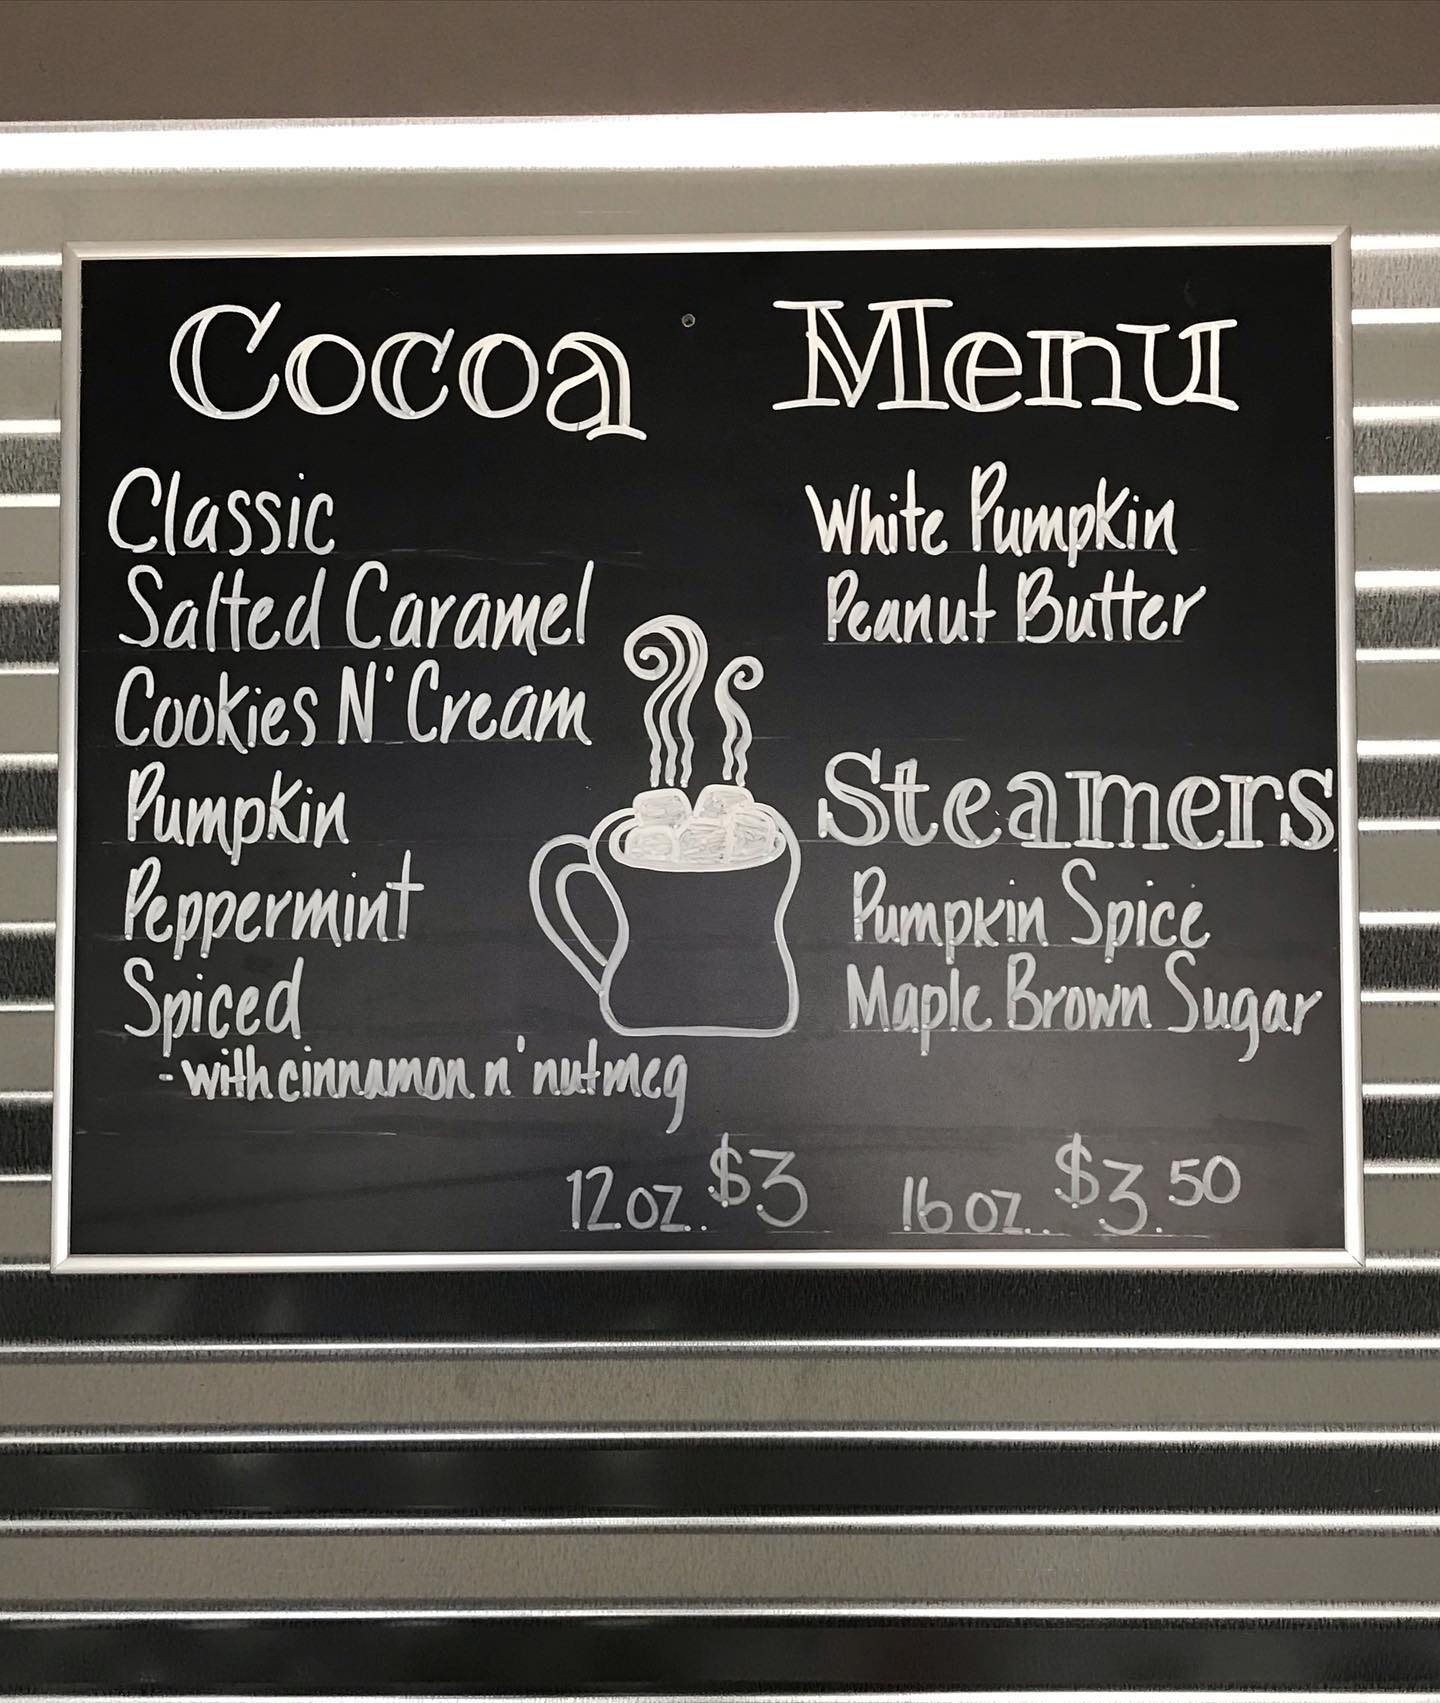 Cocoa Menu
Classic
Salted Caramel
Cookies N' Cream
Pumpkin
Peppermint
Spiced
- with cinnamon n' nutmeg
White Pumpkin
Peanut Butter
Steamers
Pumpkin Spice
Maple Brown Sugar
12 oz.. $3 16 oz... $3.50